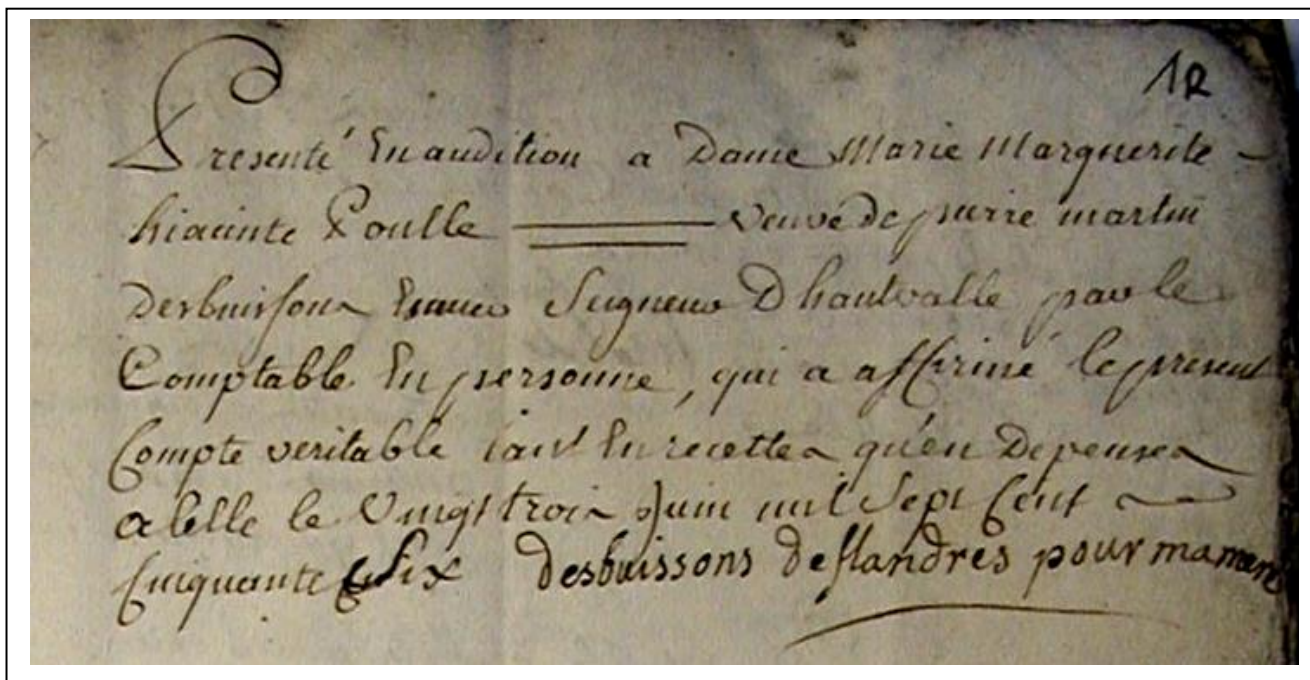 1R
Presenté En audition a Dame Marie Marguerite
hiacinte Poulle veuve de pierre martin
Desbuissons Seigneur D'hautvalle par le
Comptable En personne, qui a affirmé le present
Compte veritable tant En recettes qu'en Depenses
a lille le Vingt trois Juin mil Sept Cent
Cinquante Six desbuissons deflandres pour ma mere